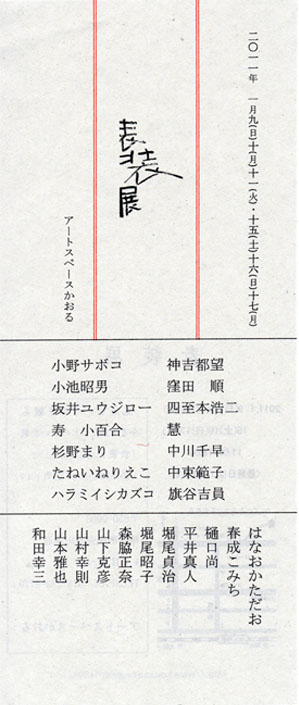 二〇一一年 一月九(日)十(月)十一(火)・十五(土)十六(日)十七(月)
表装展
アートスペースかおる
小野サボコ
小池昭男
坂井ユウジロー
寿 小百合
杉野まり
たねいねりえこ
ハラミイシカズコ
神吉都望
窪田 順
四至本浩二
慧
中川千早
中東範子
旗谷吉員
はなおかただお
春成こみち
樋口尚
平井真人
堀尾貞治
堀尾昭子
森脇正奈
山下克彦
山村幸則
山本雅也
和田幸三